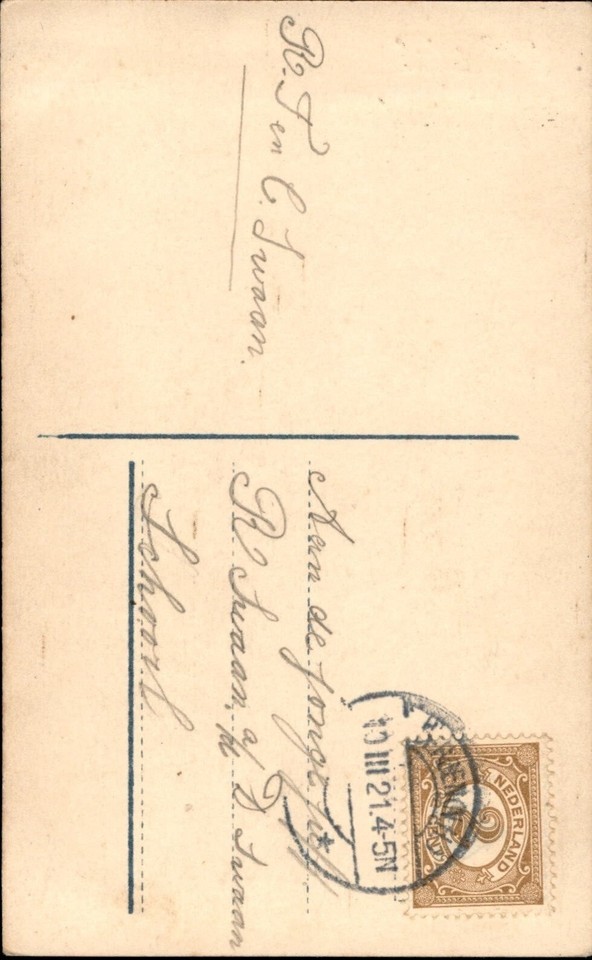 R. T en C. Swaan.
Aan de Jonge Juff
R Swaan, a/h D Swaan
Schoorl
10 III 21.4-5N
NEDERLAND
2½
CENT